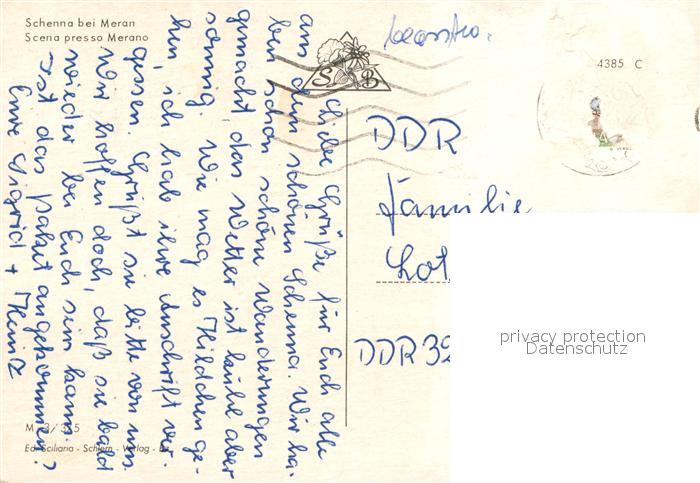 Schenna bei Meran
Scena presso Merano
beantw.
4385 C
S B
Liebe Grüße für Euch alle
aus dem schönen Schenna. Wir ha-
ben schon schöne Wanderungen
gemacht, das Wetter ist kühl aber
sonnig. Wie mag es Hildchen ge-
hen, ich hab ihre Anschrift ver-
gessen. Grüßt sie bitte von uns.
Wir hoffen doch, daß sie bald
wieder bei Euch sein kann.
Ist das Paket angekommen?
Eure Sigrid + Heinz
DDR
Familie
Lot
DDR 39
privacy protection
Datenschutz
M 3/355
Ed. Sciliaria - Schlern - Verlag